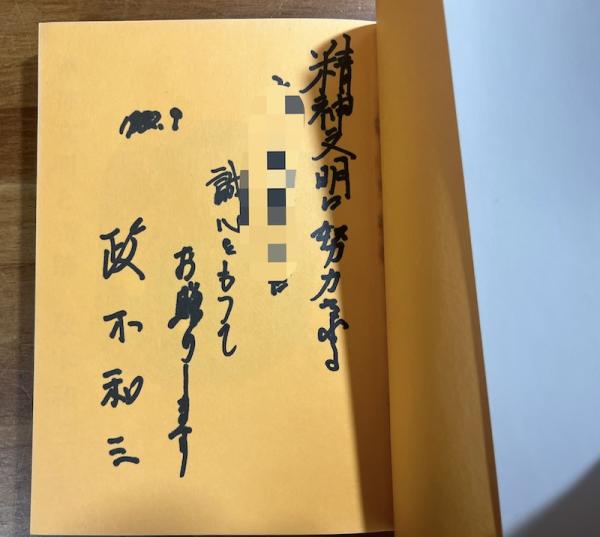 精神文明に努力される
に
誠心をもって
お贈りします
政木和三